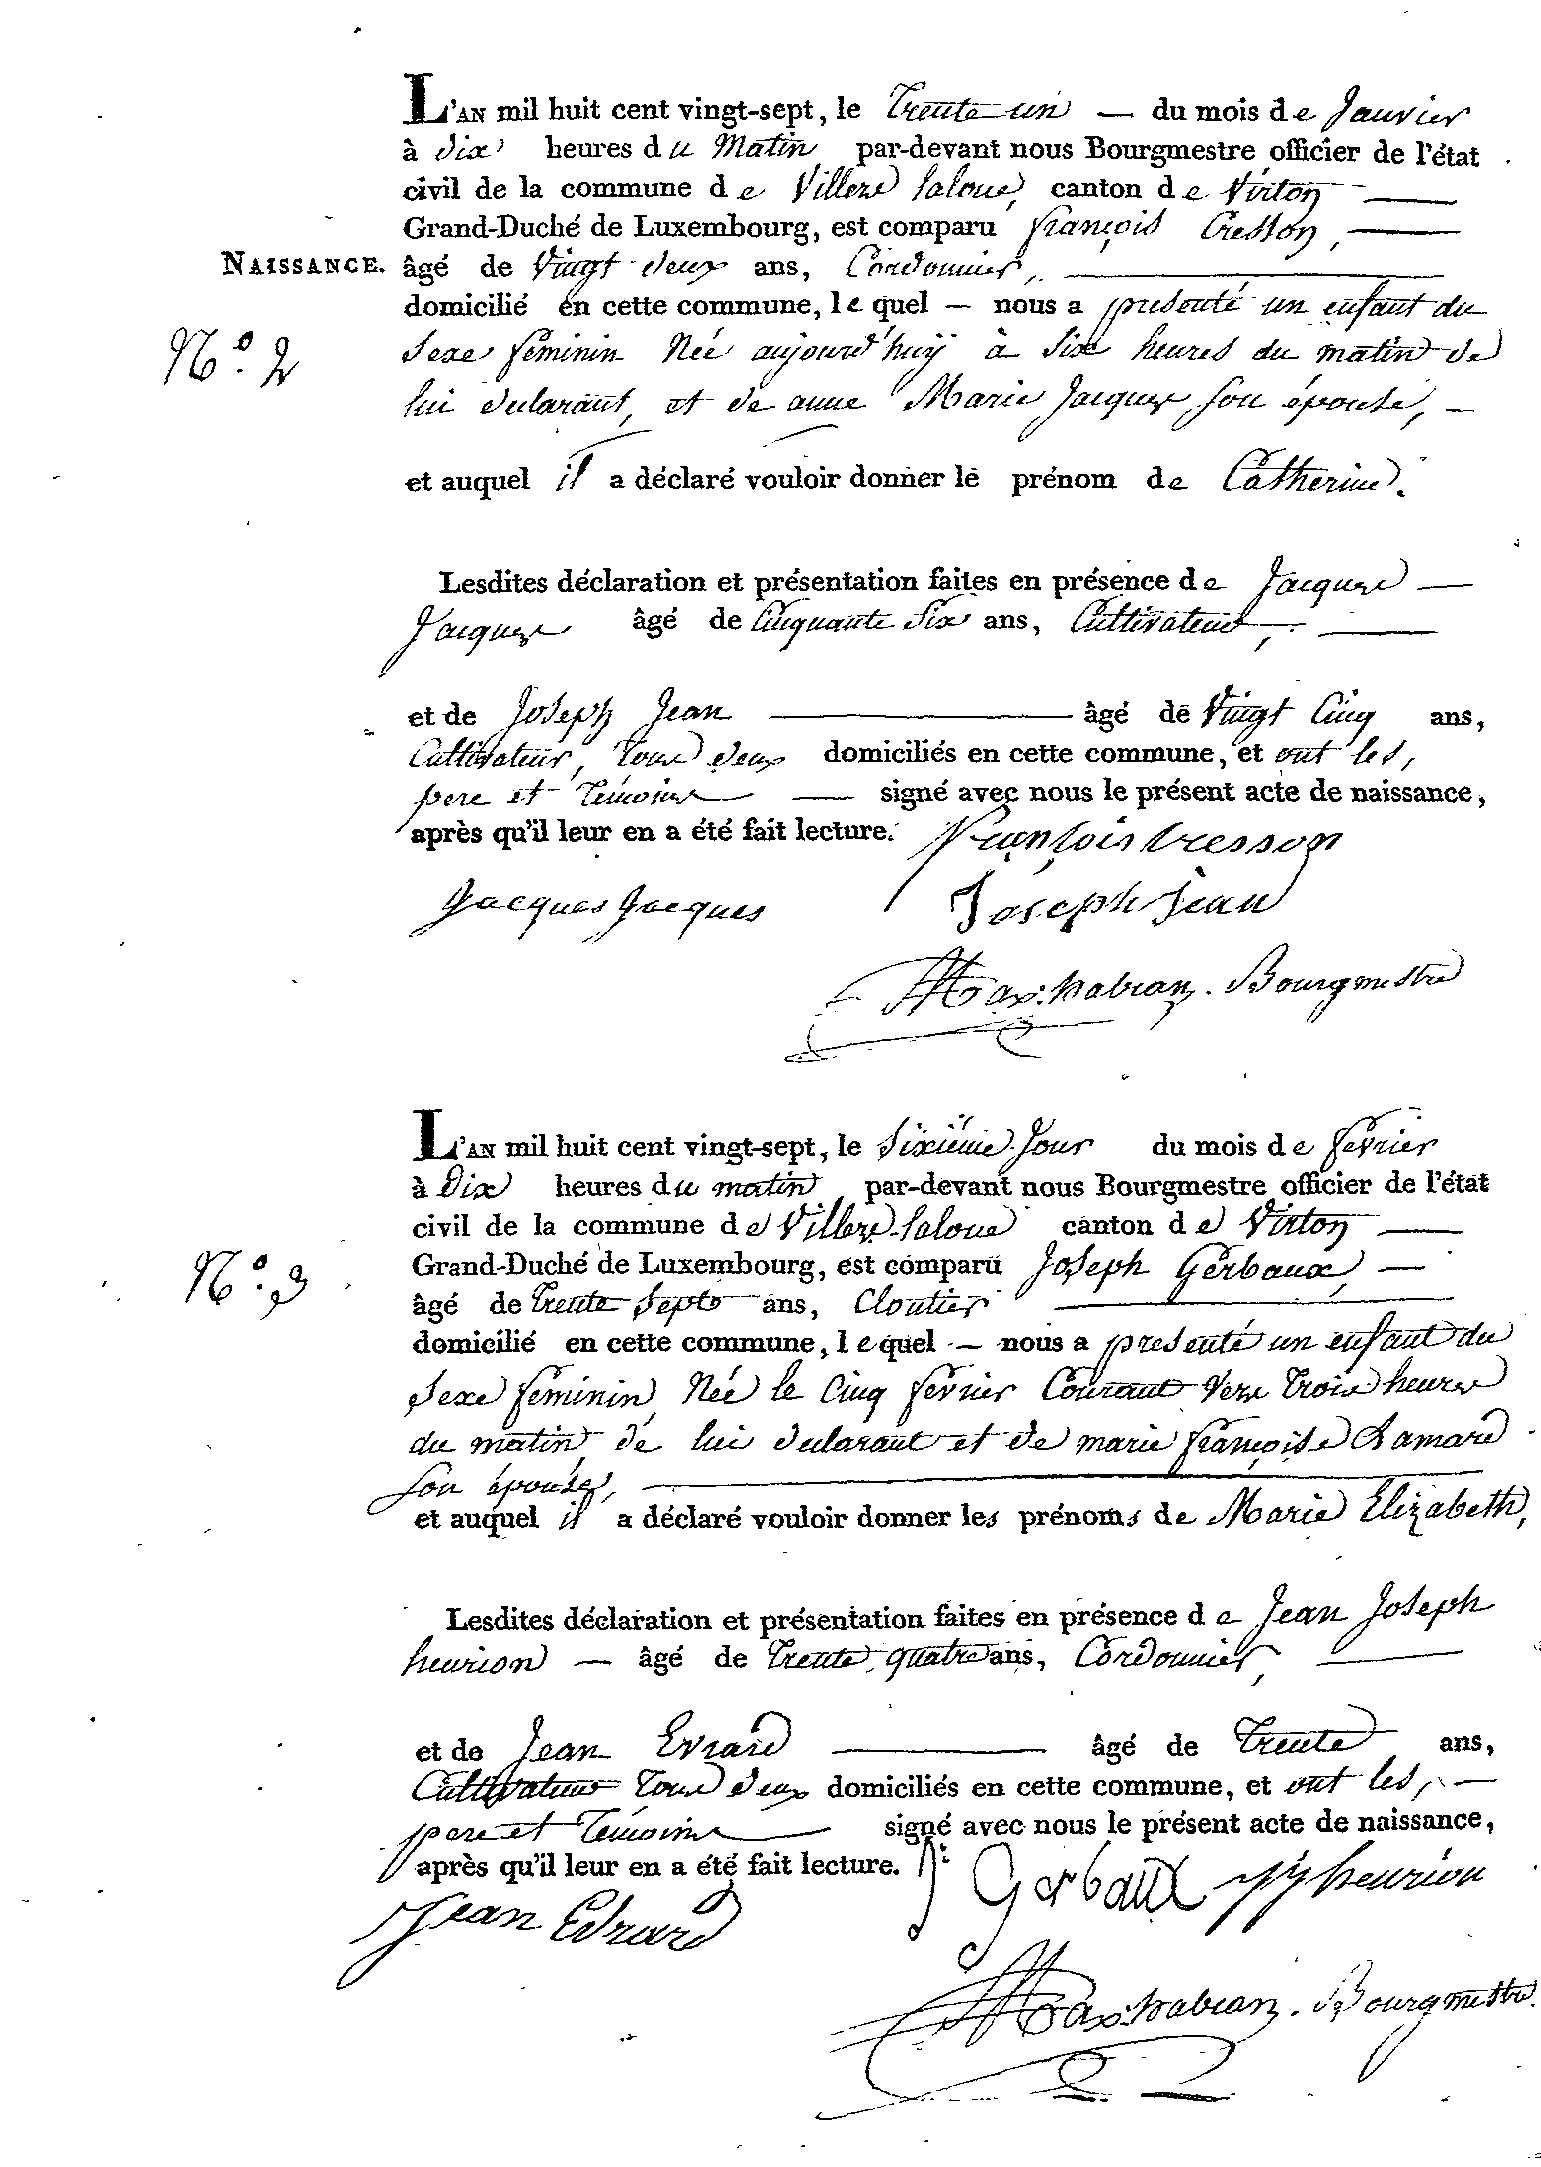 L'AN mil huit cent vingt-sept, le Trente un — du mois de Janvier
à dix heures du Matin par-devant nous Bourgmestre officier de l'état
civil de la commune de Villers laloue, canton de Virton —
Grand-Duché de Luxembourg, est comparu françois Cresson, —
NAISSANCE. âgé de Vingt deux ans, Cordonnier, —
domicilié en cette commune, lequel — nous a presenté un enfant du
N.o 2 Sexe féminin Née aujourd'huy à Six heures du matin de
lui declarant, et de anne Marie Jacques son épouse, —
et auquel il a déclaré vouloir donner le prénom de Catherine.
Lesdites déclaration et présentation faites en présence de Jacques —
Jacques âgé de Cinquante Six ans, Cultivateur, —
et de Joseph Jean — âgé de Vingt Cinq ans,
Cultivateur, Tous deux domiciliés en cette commune, et ont les,
pere et Témoins — signé avec nous le présent acte de naissance,
après qu'il leur en a été fait lecture. François Cresson
Jacques Jacques Joseph Jean
Bourgmestre
L'AN mil huit cent vingt-sept, le Sixième Jour du mois de fevrier
à Dix heures du matin par-devant nous Bourgmestre officier de l'état
civil de la commune de Villers-laloue canton de Virton —
Grand-Duché de Luxembourg, est comparu Joseph Gerbaux, —
N.o 3 âgé de Trente Septs ans, Cloutier —
domicilié en cette commune, lequel — nous a presenté un enfant du
Sexe féminin, Née le Cinq fevrier Courant vers Trois heures
du matin, de lui declarant et de marie françoise Lamard
son épouse, —
et auquel il a déclaré vouloir donner les prénoms de Marie Elizabeth,
Lesdites déclaration et présentation faites en présence de Jean Joseph
henrion — âgé de Trente quatre ans, Cordonnier, —
et de Jean Evrard — âgé de Trente ans,
Cultivateur Tous deux domiciliés en cette commune, et ont les, —
pere et Témoins — signé avec nous le présent acte de naissance,
après qu'il leur en a été fait lecture. J: Gerbaux JJ henrion
Jean Evrard
Bourgmestre